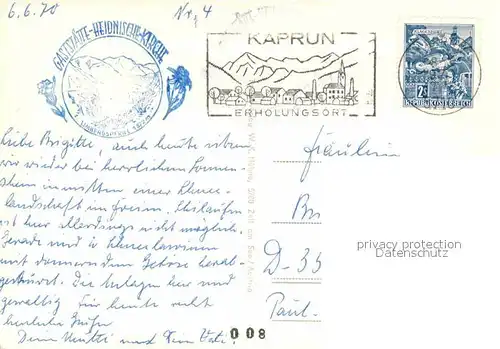 6.6.70
Nr. 4
GASTSTÄTTE-HEIDNISCHE-KIRCHE
KAPRUN
ERHOLUNGSORT
2S
REPUBLIK ÖSTERREICH
Liebe Brigitte, auch heute sitzen
wir wieder bei herrlichem Sonnen-
schein inmitten einer Schnee-
landschaft im Freien. Skilaufen
ist hier allerdings nicht möglich.
Gerade sind Schneelawinen
mit donnerndem Getöse herab-
gestürzt. Die Anlagen hier sind
gewaltig. Für heute recht
herzliche Grüße
Deine Mutti und Dein Vati.
Fräulein
Bri
D-35
Paul.
privacy protection
Datenschutz
008